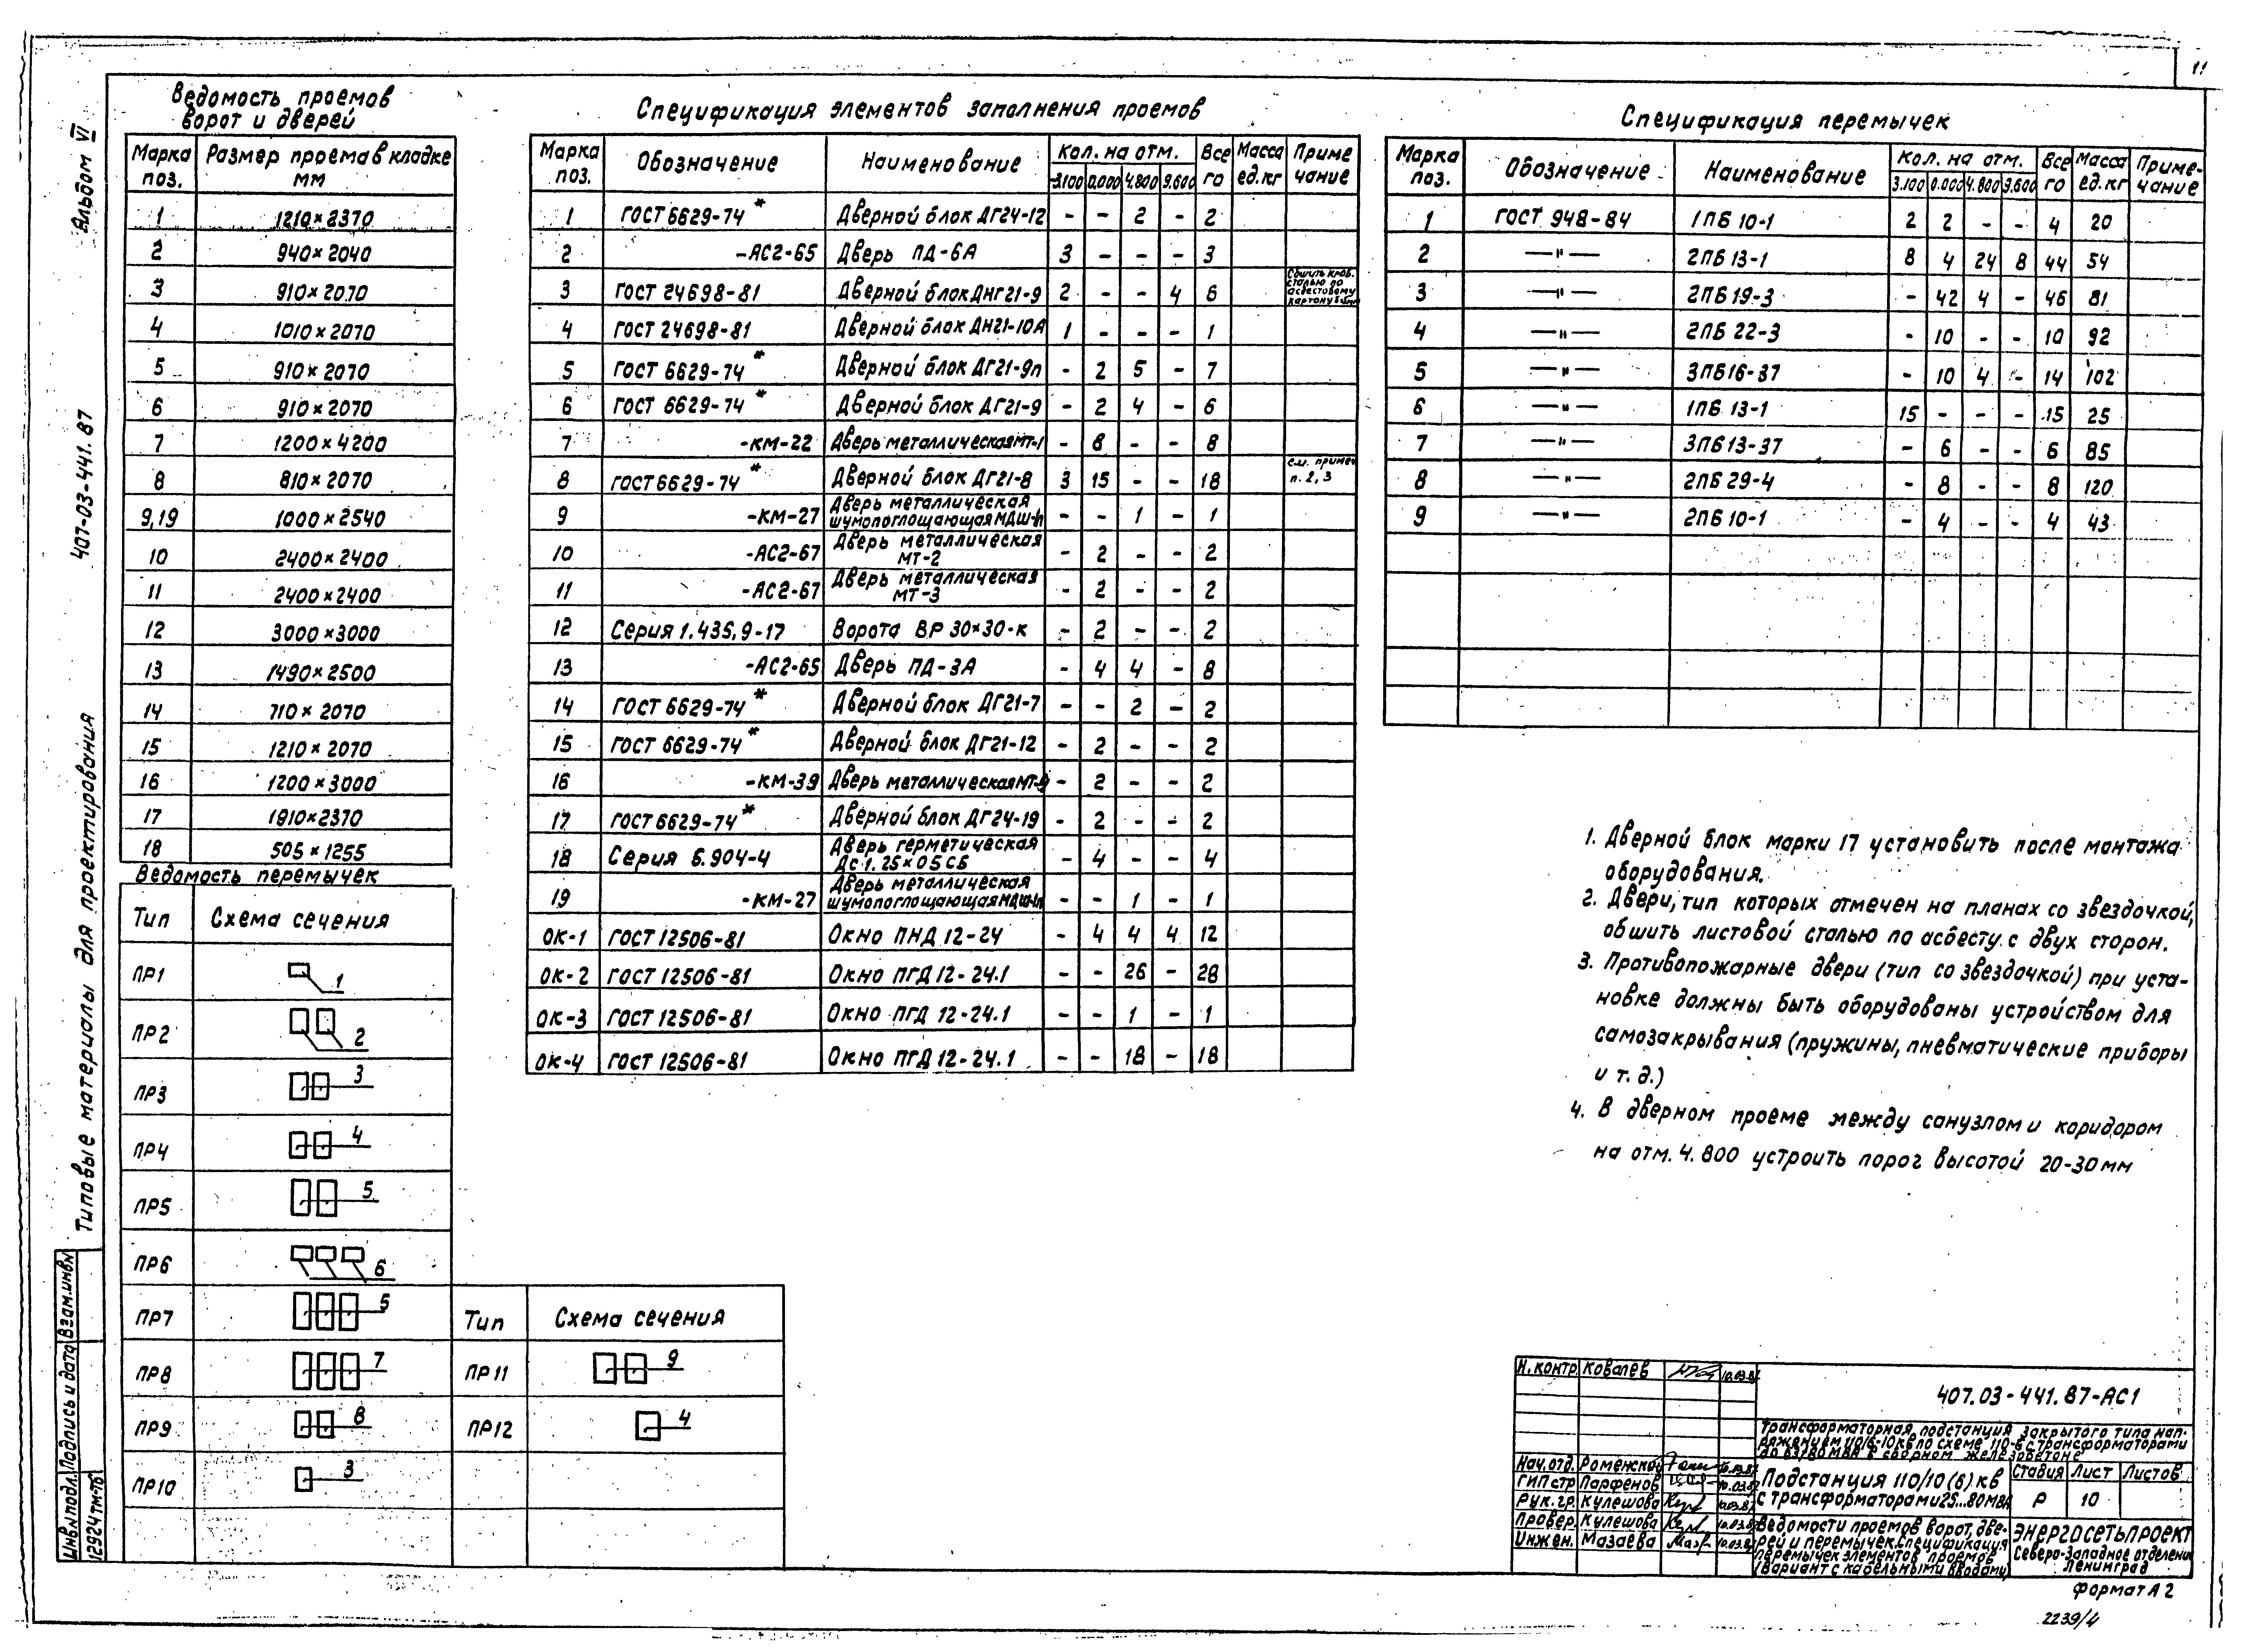 11
Альбом VI
407-03-441.87
Типовые материалы для проектирования
Взам.инв.№
Подпись и дата
Инв.№подл.
12924тм-т6
Ведомость проемов
ворот и дверей
Марка поз. | Размер проема в кладке мм
1 | 1210×2370
2 | 940×2040
3 | 910×2070
4 | 1010×2070
5 | 910×2070
6 | 910×2070
7 | 1200×4200
8 | 810×2070
9,19 | 1000×2540
10 | 2400×2400
11 | 2400×2400
12 | 3000×3000
13 | 1490×2500
14 | 710×2070
15 | 1210×2070
16 | 1200×3000
17 | 1910×2370
18 | 505×1255
Ведомость перемычек
Тип | Схема сечения
ПР1 | 1
ПР2 | 2
ПР3 | 3
ПР4 | 4
ПР5 | 5
ПР6 | 6
ПР7 | 5
ПР8 | 7
ПР9 | 8
ПР10 | 3
Тип | Схема сечения
ПР11 | 9
ПР12 | 4
Спецификация элементов заполнения проемов
Марка поз. | Обозначение | Наименование | Кол. на отм. -3.100 | 0.000 | 4.800 | 9.600 | Всего | Масса ед.кг | Примечание
1 | ГОСТ 6629-74* | Дверной блок ДГ24-12 | - | - | 2 | - | 2
2 | -АС2-65 | Дверь ПД-6А | 3 | - | - | - | 3
3 | ГОСТ 24698-81 | Дверной блок ДНГ21-9 | 2 | - | - | 4 | 6 | сталью по асбестовому картону
4 | ГОСТ 24698-81 | Дверной блок ДН21-10А | 1 | - | - | - | 1
5 | ГОСТ 6629-74* | Дверной блок ДГ21-9п | - | 2 | 5 | - | 7
6 | ГОСТ 6629-74* | Дверной блок ДГ21-9 | - | 2 | 4 | - | 6
7 | -КМ-22 | Дверь металлическая МТ-1 | - | 8 | - | - | 8
8 | ГОСТ 6629-74* | Дверной блок ДГ21-8 | 3 | 15 | - | - | 18 | см. примеч. п. 2, 3
9 | -КМ-27 | Дверь металлическая шумопоглощающая | - | - | 1 | - | 1
10 | -АС2-67 | Дверь металлическая МТ-2 | - | 2 | - | - | 2
11 | -АС2-67 | Дверь металлическая МТ-3 | - | 2 | - | - | 2
12 | Серия 1.435.9-17 | Ворота ВР 30×30-К | - | 2 | - | - | 2
13 | -АС2-65 | Дверь ПД-3А | - | 4 | 4 | - | 8
14 | ГОСТ 6629-74* | Дверной блок ДГ21-7 | - | - | 2 | - | 2
15 | ГОСТ 6629-74* | Дверной блок ДГ21-12 | - | 2 | - | - | 2
16 | -КМ-39 | Дверь металлическая | - | 2 | - | - | 2
17 | ГОСТ 6629-74* | Дверной блок ДГ24-19 | - | 2 | - | - | 2
18 | Серия 5.904-4 | Дверь герметическая Дс 1.25×0.5 СБ | - | 4 | - | - | 4
19 | -КМ-27 | Дверь металлическая шумопоглощающая | - | - | 1 | - | 1
ОК-1 | ГОСТ 12506-81 | Окно ПНД 12-24 | - | 4 | 4 | 4 | 12
ОК-2 | ГОСТ 12506-81 | Окно ПГД 12-24.1 | - | - | 26 | - | 28
ОК-3 | ГОСТ 12506-81 | Окно ПГД 12-24.1 | - | - | 1 | - | 1
ОК-4 | ГОСТ 12506-81 | Окно ПГД 12-24.1 | - | - | 18 | - | 18
Спецификация перемычек
Марка поз. | Обозначение | Наименование | Кол. на отм. 3.100 | 0.000 | 4.800 | 9.600 | Всего | Масса ед.кг | Примечание
1 | ГОСТ 948-84 | 1ПБ 10-1 | 2 | 2 | - | - | 4 | 20
2 | —"— | 2ПБ 13-1 | 8 | 4 | 24 | 8 | 44 | 54
3 | —"— | 2ПБ 19-3 | - | 42 | 4 | - | 46 | 81
4 | —"— | 2ПБ 22-3 | - | 10 | - | - | 10 | 92
5 | —"— | 3ПБ16-37 | - | 10 | 4 | - | 14 | 102
6 | —"— | 1ПБ 13-1 | 15 | - | - | - | 15 | 25
7 | —"— | 3ПБ13-37 | - | 6 | - | - | 6 | 85
8 | —"— | 2ПБ 29-4 | - | 8 | - | - | 8 | 120
9 | —"— | 2ПБ 10-1 | - | 4 | - | - | 4 | 43
1. Дверной блок марки 17 установить после монтажа
оборудования.
2. Двери, тип которых отмечен на планах со звездочкой,
обшить листовой сталью по асбесту с двух сторон.
3. Противопожарные двери (тип со звездочкой) при уста-
новке должны быть оборудованы устройством для
самозакрывания (пружины, пневматические приборы
и т. д.)
4. В дверном проеме между санузлом и коридором
на отм. 4.800 устроить порог высотой 20-30мм
Н.контр. Ковалев 10.03.87
407.03-441.87-АС1
Трансформаторная подстанция закрытого типа нап-
ряжением 110/6-10кВ по схеме 110-6 с трансформаторами
до 63/80 МВА в сборном железобетоне
Нач.отд. Роменский 10.03.87
ГИП стр Парфенов 10.03.87
Рук.гр. Кулешова 10.03.87
Провер. Кулешова 10.03.87
Инжен. Мазаева 10.03.87
Подстанция 110/10(6) кВ
с трансформаторами 25...80 МВА
Стадия | Лист | Листов
Р | 10
Ведомости проемов ворот, две-
рей и перемычек. Спецификация
перемычек элементов проемов
(Вариант с кабельными вводами)
ЭНЕРГОСЕТЬПРОЕКТ
Северо-Западное отделение
Ленинград
Формат А2
2239/4